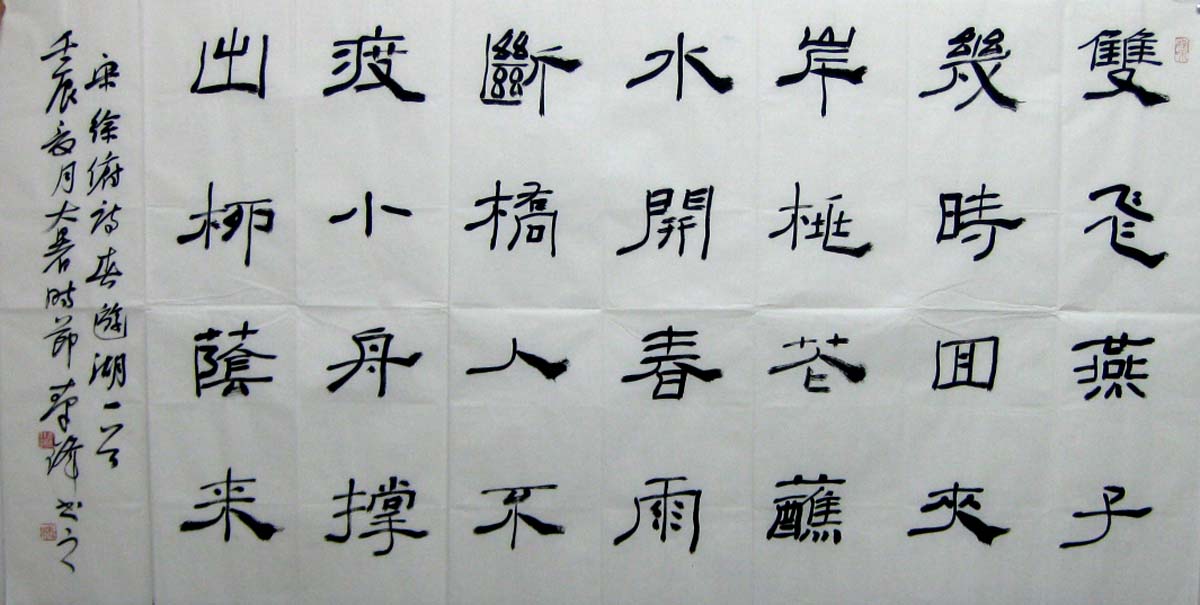 雙飛燕子
幾時回夾
岸桃花蘸
水開春雨
斷橋人不
渡小舟撐
出柳蔭来
宋徐俯詩春遊湖一首
壬辰夏月大暑時節 書之